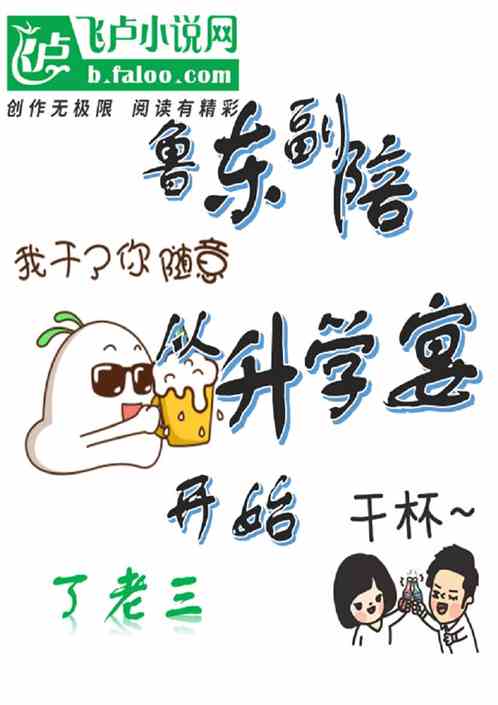 飞卢小说网
b.faloo.com
创作无极限 阅读有精彩
鲁东副陪
我干了你随意
从升学宴
开始
干杯~
了老三